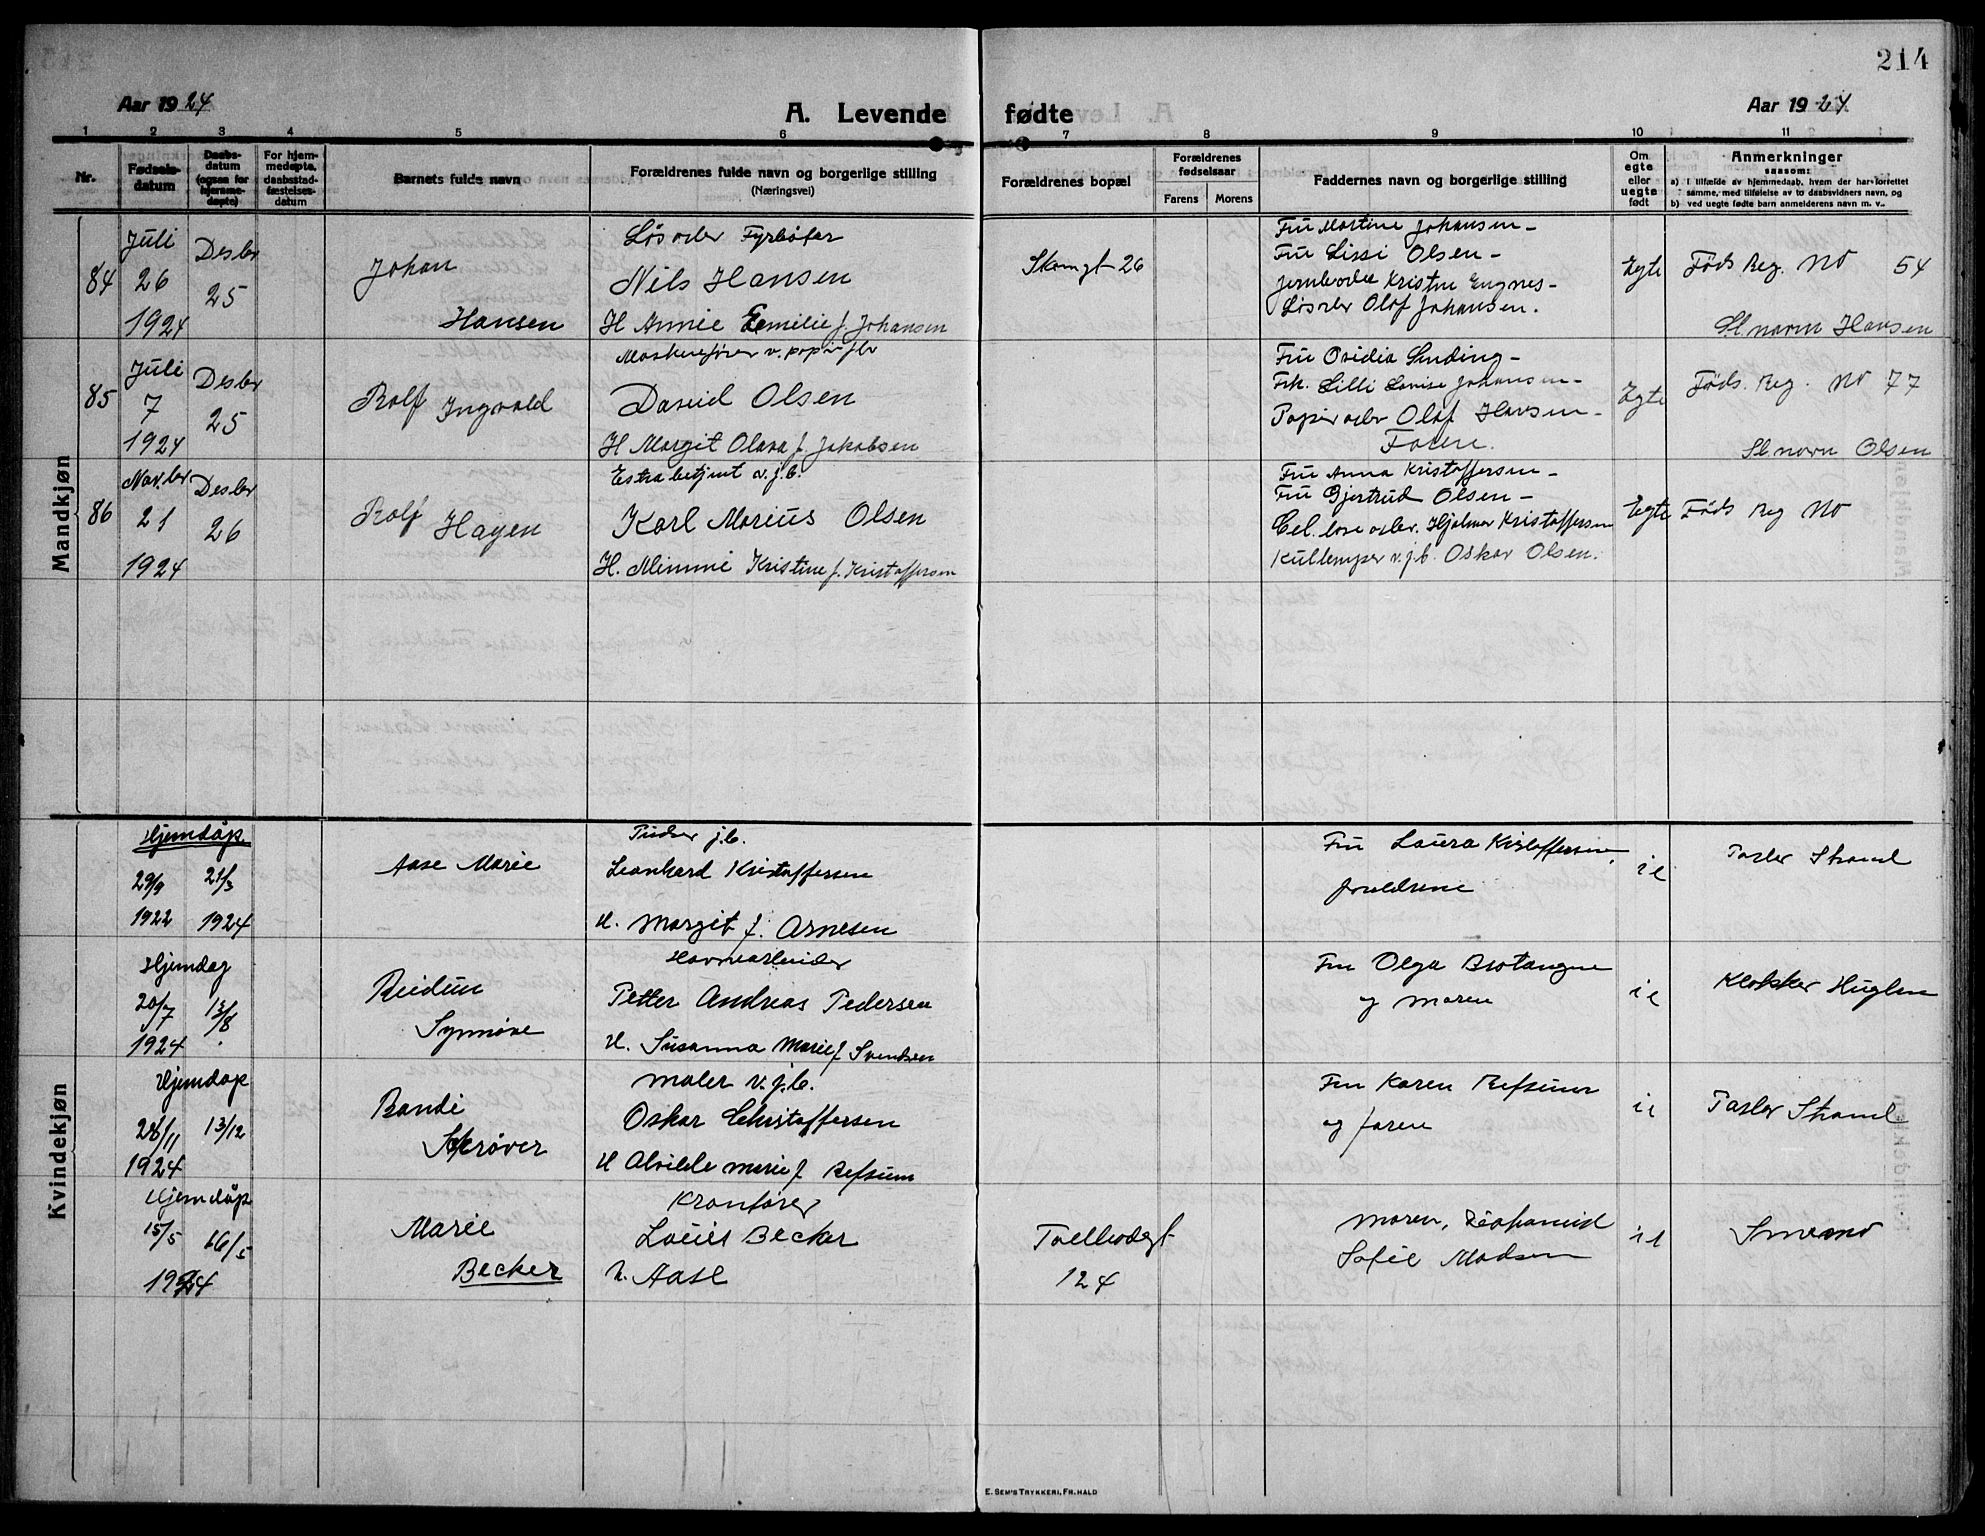 214
Aar 1924
A. Levende fødte
Aar 1924
1 2 3 4 5 6 7 8 9 10 11
Nr.
Fødselsdatum
Daabsdatum (ogsaa for hjemmedøpte)
For hjemmedøpte, daabsstadfæstelsesdatum
Barnets fulde navn
Forældrenes fulde navn og borgerlige stilling
(Næringsvei)
Forældrenes bopæl
Forældrenes fødselsaar
Farens Morens
Faddernes navn og borgerlige stilling
Om egte eller uegte født
Anmerkninger
saasom:
a) I tilfælde av hjemmedaab, hvem der har forrettet samme, med tilføielse av to daabsvidners navn, og
b) ved uegte fødte barn anmelderens navn m. v.
Mandkjøn
84
Juli
26
1924
Desbr
25
Johan
Hansen
Løsarb Fyrbøter
Nils Hansen
H Annie Emilie f. Johansen
Skomgt 26
Fru Martine Johansen -
Fru Lissi Olsen -
Kristine Engnes -
Løsarb Olof Johansen.
Egte
Føds Reg. No 54
Sl navn Hansen
85
Juli
7
1924
Desbr
25
Rolf Ingvald
Maskinfører v. papirfbr
David Olsen
H Margit Olava f. Jakobsen
Fru Ovidia Sinding -
Frk. Lilli Lovise Johansen -
Papirarbr Olaf Hansen -
Foten.
Egte
Føds. Reg. No 77
Sl navn Olsen
86
Nov.br
21
1924
Desbr
26
Rolf
Hagen
Extrabetjent v. j.b.
Karl Marius Olsen
H. Mimmi Kristine f. Kristoffersen
Fru Anna Kristoffersen -
Fru Gjertrud Olsen -
Cel. lose arbr. Hjalmar Kristoffersen
Kullemper v.j.b. Oskar Olsen.
Egte
Føds Reg No
Kvindekjøn
Hjemdåp
29/9
1922
21/3
1924
Aase Marie
Pudser j.b.
Leonhard Kristoffersen
H. Margit f. Arnesen
Fru Laura Kristoffersen,
foreldrene
il
Pastor Strand
Hjemdag
20/7
1924
13/8
Reidun
Synnøve
Havnearbeider
Petter Andreas Pedersen
H. Susanna Marie f Svendsen
Fru Olga Brotangne
og moren
il
Klokker Huglen
Hjemdåp
28/11
1924
13/12
Randi
Maler v. j.b.
Oskar Christoffersen
H Alvilde Marie f Refsum
Fru Karen Refsum
og faren
il
Pastor Strand
Hjemdåp
15/5
1924
16/5
Marie
Becker
Kranfører
Louis Becker
h. Aase
Tollbodgt
124
Moren,
Sofie Madsen
il
E. SEM'S TRYKKERI, FR.HALD